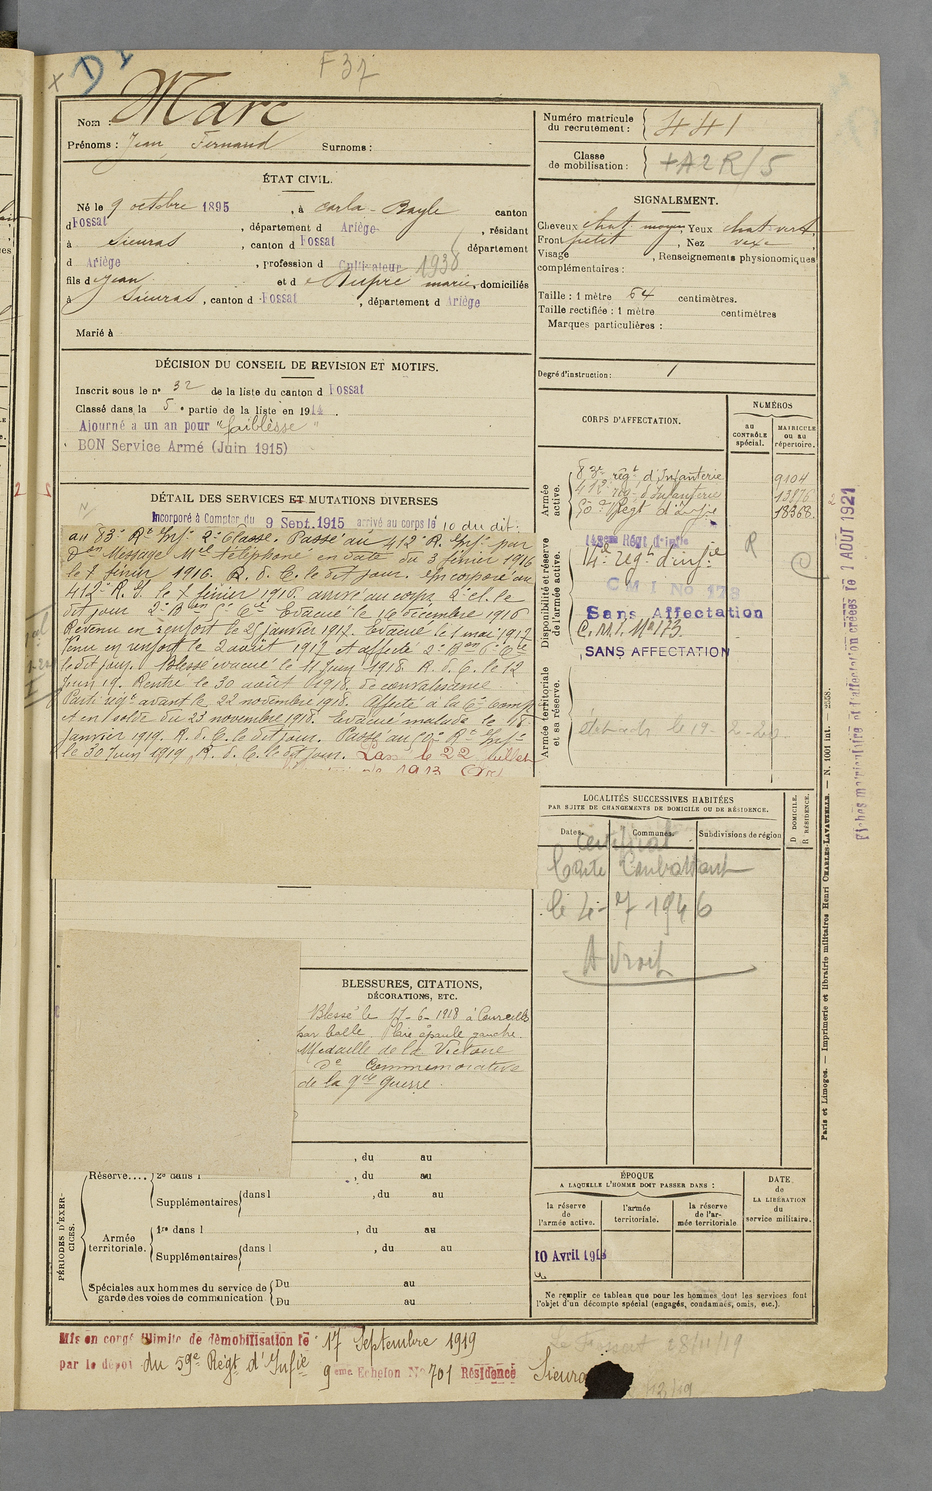 F 37
Nom : Marc
Prénoms : Jean Fernand Surnoms :
Numéro matricule du recrutement : 441
Classe de mobilisation :
ÉTAT CIVIL.
Né le 9 octobre 1895, à Carla-Bayle canton
d Fossat, département d Ariège, résidant
à Sieuras, canton d Fossat département
d Ariège, profession d Cultivateur 1938
fils d Jean et d Dupré marie, domiciliés
à Sieuras, canton d Fossat, département d Ariège
Marié à
SIGNALEMENT.
Cheveux chat. moyen, Yeux chat. vert,
Front petit, Nez vexe
Visage , Renseignements physionomiques
complémentaires :
Taille : 1 mètre 64 centimètres.
Taille rectifiée : 1 mètre centimètres
Marques particulières :
Degré d'instruction : 1
DÉCISION DU CONSEIL DE REVISION ET MOTIFS.
Inscrit sous le n° 32 de la liste du canton d Fossat
Classé dans la 5e partie de la liste en 1914.
Ajourné a un an pour "faiblesse"
BON Service Armé (Juin 1915)
DÉTAIL DES SERVICES ET MUTATIONS DIVERSES
Incorporé à Compter du 9 Sept. 1915 arrivé au corps le 10 du dit :
au 83e Rt Infie 2e Classe. Passé au 412e R. Infie par
Don Message Mel téléphoné en date du 3 février 1916
le 7 février 1916. R. d. C. le dit jour. Incorporé au
412e R. I. le 7 février 1916. arrivé au corps 2e cl. le
dit jour 2e Bon 6e Cie Evacué le 16 décembre 1916
Revenu en renfort le 25 janvier 1917. Evacué le 1 mai 1917
Venu en renfort le 2 août 1917 et affecté 2e Bon 6e Cie
le dit jour. Blessé évacué le 11 Juin 1918. R. d. C. le 12
Juin 19. Rentré le 30 août 1918 de convalescence
Parti régt avant le 22 novembre 1918. Affecté à la 6e Comp
et en solde du 23 novembre 1918. Evacué malade le 18
Janvier 1919. R. d. C. le dit jour. Passé au 50e Rt Infie
le 30 Juin 1919. R. d. C. le dit jour. Las le 22 juillet
CORPS D'AFFECTATION.
NUMÉROS
au CONTRÔLE spécial.
MATRICULE ou au répertoire.
Armée active.
83e régt d'Infanterie 9104
412e régt d'Infanterie 13876
50e Régt d'Infie 18368
Disponibilité et réserve de l'armée active.
14e régt d'infie R
C M I No 173
Sans Affectation
C.M.I. No 173
SANS AFFECTATION
Armée territoriale et sa réserve.
le 19-2-20
LOCALITÉS SUCCESSIVES HABITÉES
PAR SUITE DE CHANGEMENTS DE DOMICILE OU DE RÉSIDENCE.
Dates. Communes. Subdivisions de région
D DOMICILE. R RÉSIDENCE.
Certificat
Carte Combattant
le 4-7 1946
A droit
BLESSURES, CITATIONS,
DÉCORATIONS, ETC.
Blessé le 11-6-1918 à Courcelles
par balle Plaie épaule gauche.
Médaille de la Victoire
de Commémorative
de la gde guerre.
PÉRIODES D'EXERCICES.
, du au
Réserve.... 2e dans l , du au
Supplémentaires dans l , du au
Armée territoriale. 1re dans l , du au
Supplémentaires dans l , du au
Spéciales aux hommes du service de garde des voies de communication
Du au
Du au
ÉPOQUE
A LAQUELLE L'HOMME DOIT PASSER DANS :
la réserve de l'armée active.
l'armée territoriale.
la réserve de l'armée territoriale
DATE de LA LIBÉRATION du service militaire.
10 Avril 1918
Ne remplir ce tableau que pour les hommes dont les services font
l'objet d'un décompte spécial (engagés, condamnés, omis, etc.).
Mis en congé illimité de démobilisation le 17 Septembre 1919
par le dépôt du 59e Régt d'Infie 9eme Echelon No 701 Résidence Sieuras
28/11/19
Paris et Limoges. — Imprimerie et librairie militaires Henri CHARLES-LAVAUZELLE. — N. 1001 int. — 2558.
Fiches matriculaire et d'affectation créées le 1 AOUT 1921